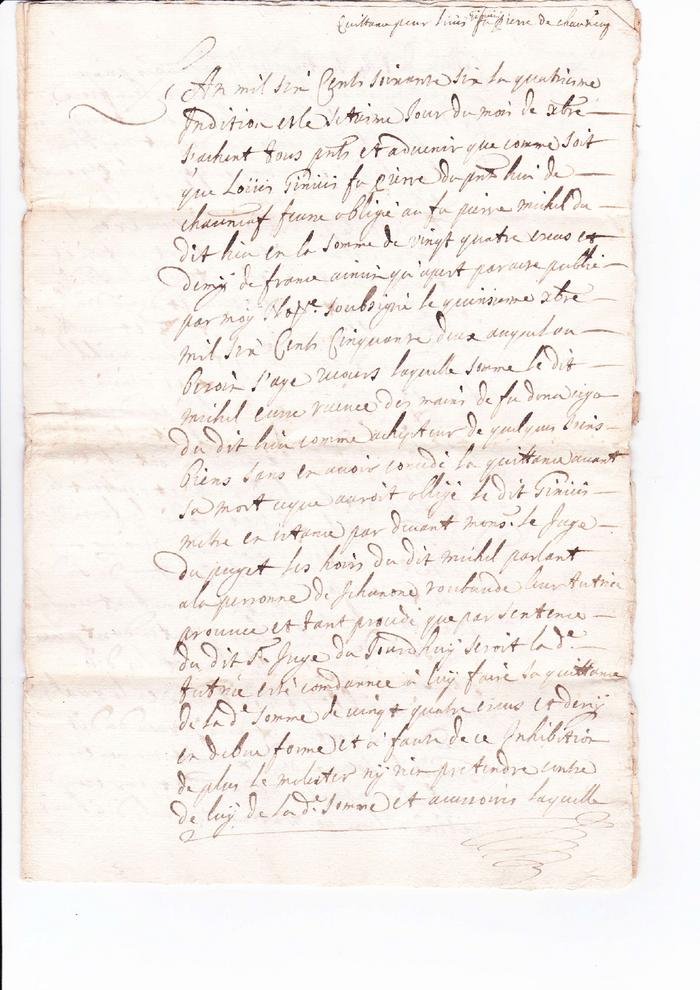 Quittance pour Louis Giniis fu pierre de chauneuf
An mil six Cents soixante six la quatriesme
Indition et le setiesme Jour du mois de xbre
Sachent tous pnts et advenir que comme soit
que Loüis Giniis fu pierre du pnt lieu de
chauneuf feusse obligé au fu pierre michel du
dit lieu en la somme de vingt quatre escus et
demÿ de france ainsin qu'apert par acte publie
par moy Nore soubsigné le quinsiesme xbre
mil six Cents Cinquante deux auquel au
besoin s'aye recours laquelle somme le dit
michel eusse receue des mains de fu
du dit lieu comme achepteur de quelques siens
biens sans en avoir concédé la quittance avant
sa mort ce que auroit obligé le dit Giniis
metre en istance par devant monsr le Juge
du puget les hoirs du dit michel parlant
a la personne de Jehanone roubaude leur tutrice
et tant procédé que par sentence
du dit Sr Juge du Jourdhuy seroit la de
tutrice esté comdannée à luy faire sa quittance
de la de somme de vingt quatre escus et demÿ
en debue forme et à faute de ce Inhibition
de plus le molester nÿ rien pretendre contre
de luy de la de somme et accessoires laquelle